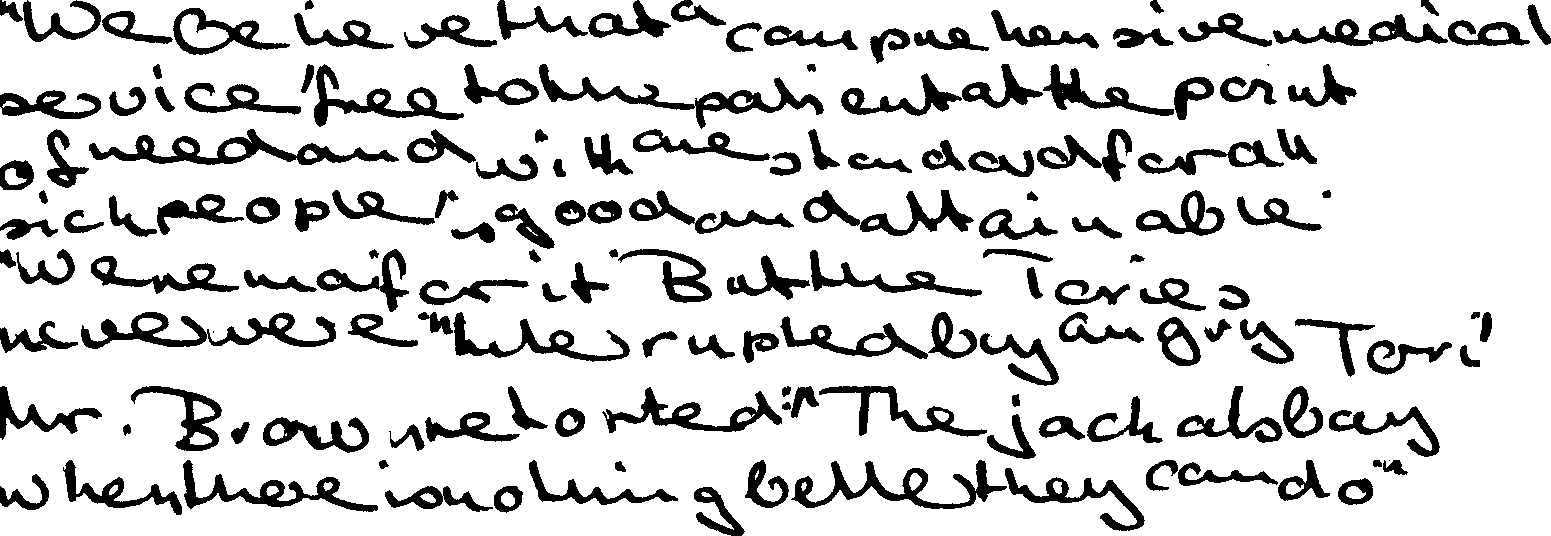 "We Believe that a comprehensive medical
service 'free to the patient at the point
of need and with one standard for all
sick people', is good and attainable.
"We remain for it. But the Tories
never were." Interrupted by angry Tori'
Mr. Brown retorted: "The jackals bay
when there is nothing better they can do"